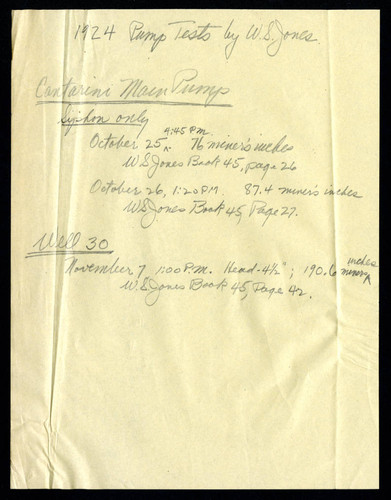 1924 Pump Tests by W.S. Jones.
Contarini Main Pump
Syphon only
October 25, 4:45 P.M. 76 miner's inches
W.S. Jones Book 45, page 26
October 26, 1:20 P.M. 87.4 miner's inches
W.S. Jones Book 45, Page 27.
Well 30
November 7 1:00 P.M. Head - 4½"; 190.6 miner's inches
W.S. Jones Book 45, Page 42.